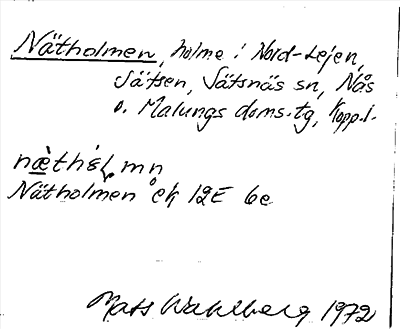 Nätholmen, holme i Nord-Lejen,
Sätsen, Sätsnäs sn, Nås
o. Malungs doms.tg, Kopp.l.
næ̀thɷ̀ɭmn̥
Nätholmen ek 12E 6e
Mats Wahlberg 1972